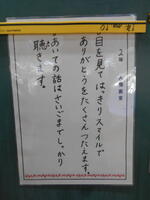 目を見てはっきりスマイルで
ありがとうをたくさんつたえます。
あいての話はさいごまでしっかり
聴きます。